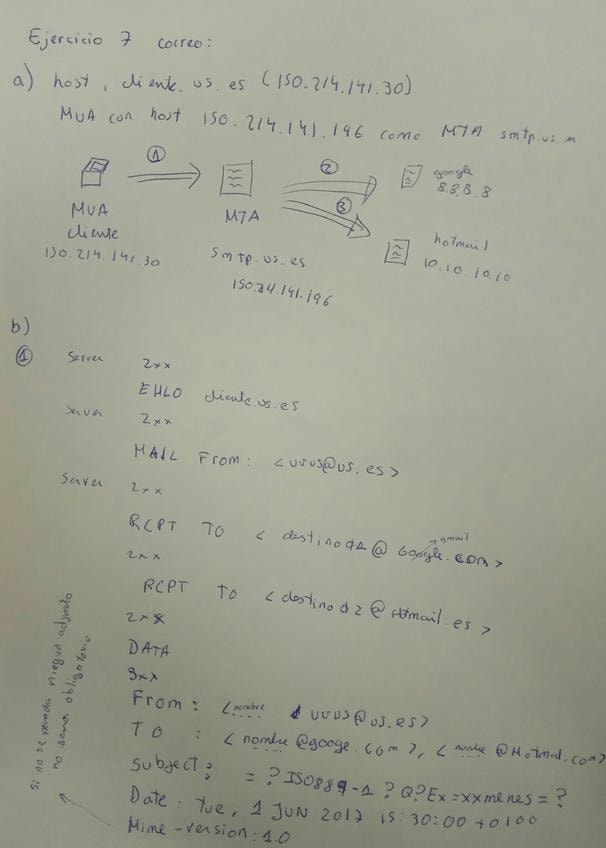 Ejercicio 7 correo:
a) host, cliente.us.es (150.214.141.30)
MUA con host 150.214.141.196 como MTA smtp.us.es
① ② google
8.8.8.8
③
MUA MTA hotmail
cliente 10.10.10.10
150.214.141.30 smtp.us.es
150.24.141.196
b)
① Server 2xx
EHLO cliente.us.es
Server 2xx
MAIL From: <uvus@us.es>
Server 2xx
gmail
RCPT TO <destino01@Google.com>
2xx
RCPT TO <destino02@Hotmail.es>
2xx
DATA
3xx
From: <nombre uvus@us.es>
TO : <nombre@googe.com>, <nombre@Hotmail.com>
Subject: =?ISO889-1?Q?Ex=xxmenes=?
Date: Tue, 1 JUN 2017 15:30:00 +0100
Mime-version: 1.0
si no se manda ningun adjunto
no seria obligatorio